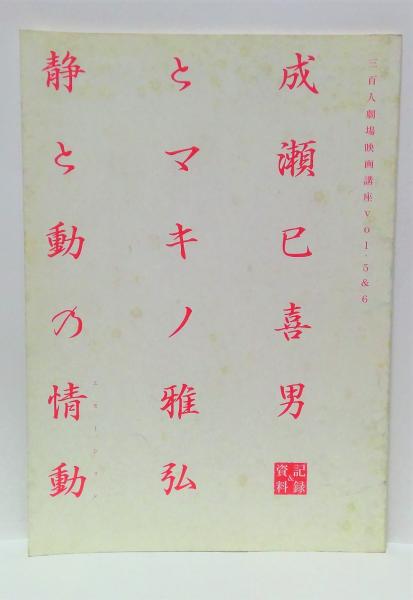 三百人劇場映画講座vol.5&6
成瀬巳喜男
記録
&
資料
とマキノ雅弘
静と動の情動
エモーション